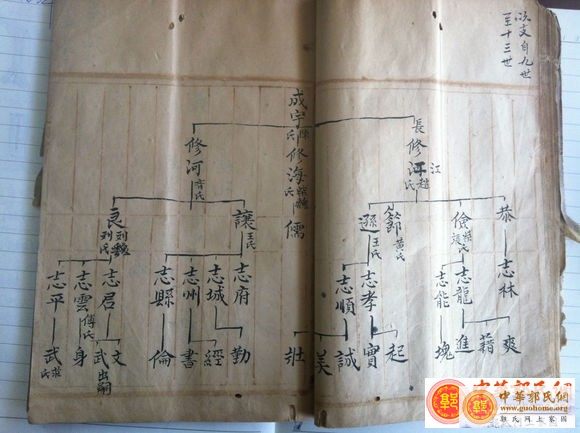 次文自九世
至十三世
成宇 陳氏
長 修江 趙氏
修海
修河
恭
儉
節 黃氏
遜 王氏
儒
讓 王氏
良 刘氏
志林
志龍
志能
志孝
志順
志府
志城
志州
志縣
志君
志雲 傅氏
志平
爽
籍
進
塊
起
實
誠
美
壯
勤
經
書
倫
文 出嗣
武
身
武 莊氏
中華郭氏網
www.guohome.org
郭氏網上家園